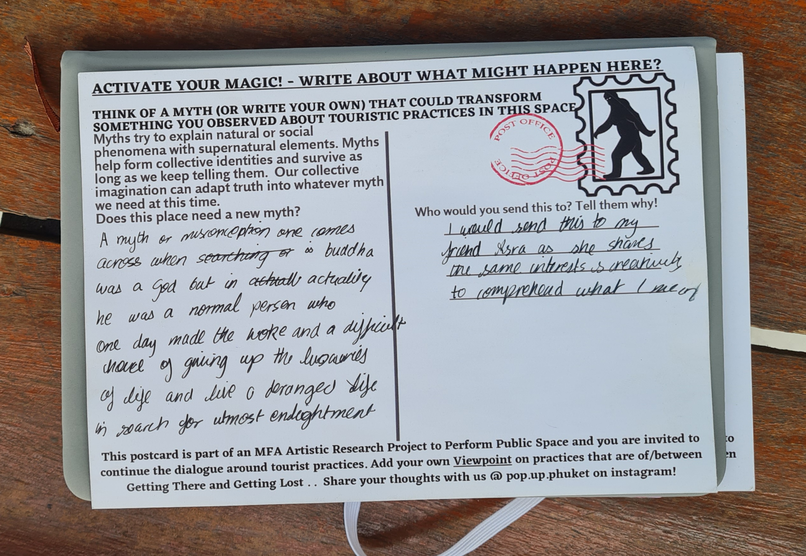 ACTIVATE YOUR MAGIC! - WRITE ABOUT WHAT MIGHT HAPPEN HERE?
THINK OF A MYTH (OR WRITE YOUR OWN) THAT COULD TRANSFORM
SOMETHING YOU OBSERVED ABOUT TOURISTIC PRACTICES IN THIS SPACE
Myths try to explain natural or social
phenomena with supernatural elements. Myths
help form collective identities and survive as
long as we keep telling them. Our collective
imagination can adapt truth into whatever myth
we need at this time.
Does this place need a new myth?
A myth or misconception one comes
across when searching or is buddha
was a god but in actually actuality
he was a normal person who
one day made the woke and a difficult
of giving up the luxuries
of life and live a deranged life
in search for utmost
POST OFFICE
POST OFFICE
Who would you send this to? Tell them why!
I would send this to my
friend Isra as she shares
the same interests & creativity
to comprehend what I
This postcard is part of an MFA Artistic Research Project to Perform Public Space and you are invited to
continue the dialogue around tourist practices. Add your own Viewpoint on practices that are of/between
Getting There and Getting Lost . . Share your thoughts with us @ pop.up.phuket on instagram!
to
en